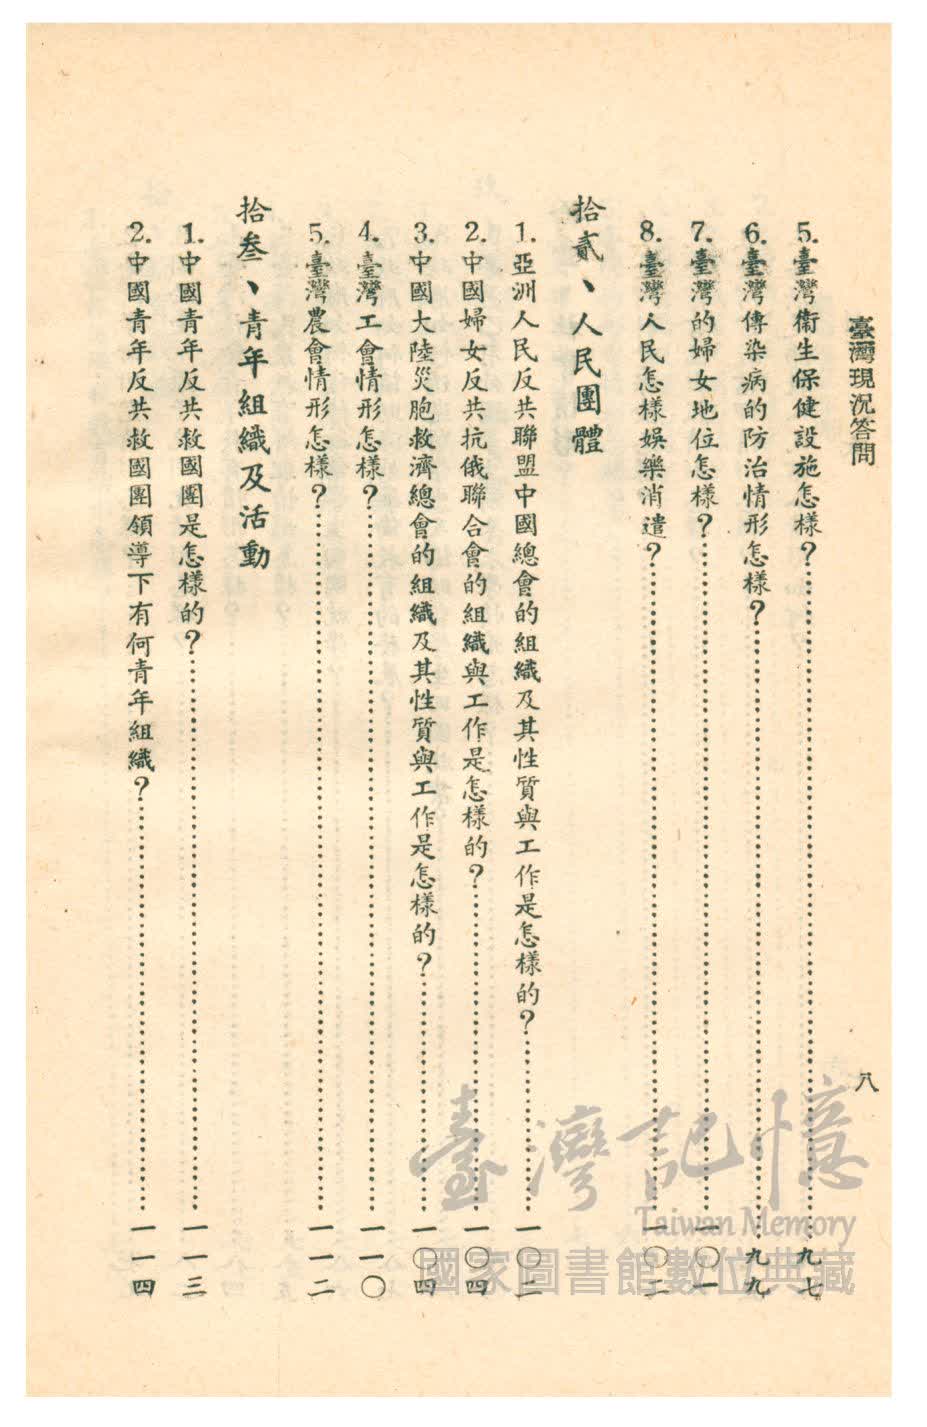 臺灣現況答問
八
5.臺灣衞生保健設施怎樣？……九七
6.臺灣傳染病的防治情形怎樣？……九九
7.臺灣的婦女地位怎樣？……一〇一
8.臺灣人民怎樣娛樂消遣？……一〇二
拾貳、人民團體
1.亞洲人民反共聯盟中國總會的組織及其性質與工作是怎樣的？……一〇二
2.中國婦女反共抗俄聯合會的組織與工作是怎樣的？……一〇四
3.中國大陸災胞救濟總會的組織及其性質與工作是怎樣的？……一〇四
4.臺灣工會情形怎樣？……一一〇
5.臺灣農會情形怎樣？……一一二
拾叁、青年組織及活動
1.中國青年反共救國團是怎樣的？……一一三
2.中國青年反共救國團領導下有何青年組織？……一一四
臺灣記憶
Taiwan Memory
國家圖書館數位典藏